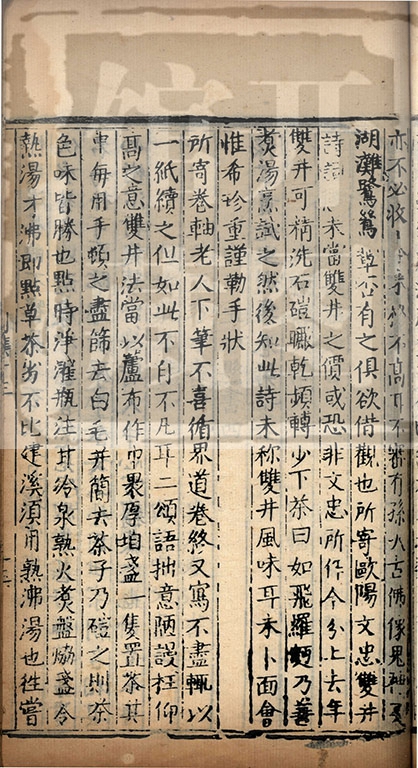 亦不必收耳不審有孫大古佛像鬼神
湖灘鷺鷥草否有之俱欲借觀也所寄歐陽文忠雙井
詩未當雙井之價或恐非文忠所作今分上去年
雙井可精洗石磑曬乾頻轉少下茶臼如飛羅麵乃善
煑湯烹試之然後知此詩未称雙井風味耳未卜面會
惟希珍重謹勒手狀
所寄卷軸老人下筆不喜循界道卷終又寫不盡輒以
一紙續之但如此不自不凡耳二頌語拙意陋謾枉仰
髙之意雙井法當以蘆布作巾裹厚盞一隻置茶其
中每用手頓之盡篩去白毛并簡去茶子乃磑之則茶
色味皆勝也點時淨濯瓶注甘冷泉熟火煑盤盞令
熱湯才沸即點草茶劣不比建溪須用熟沸湯也徃嘗